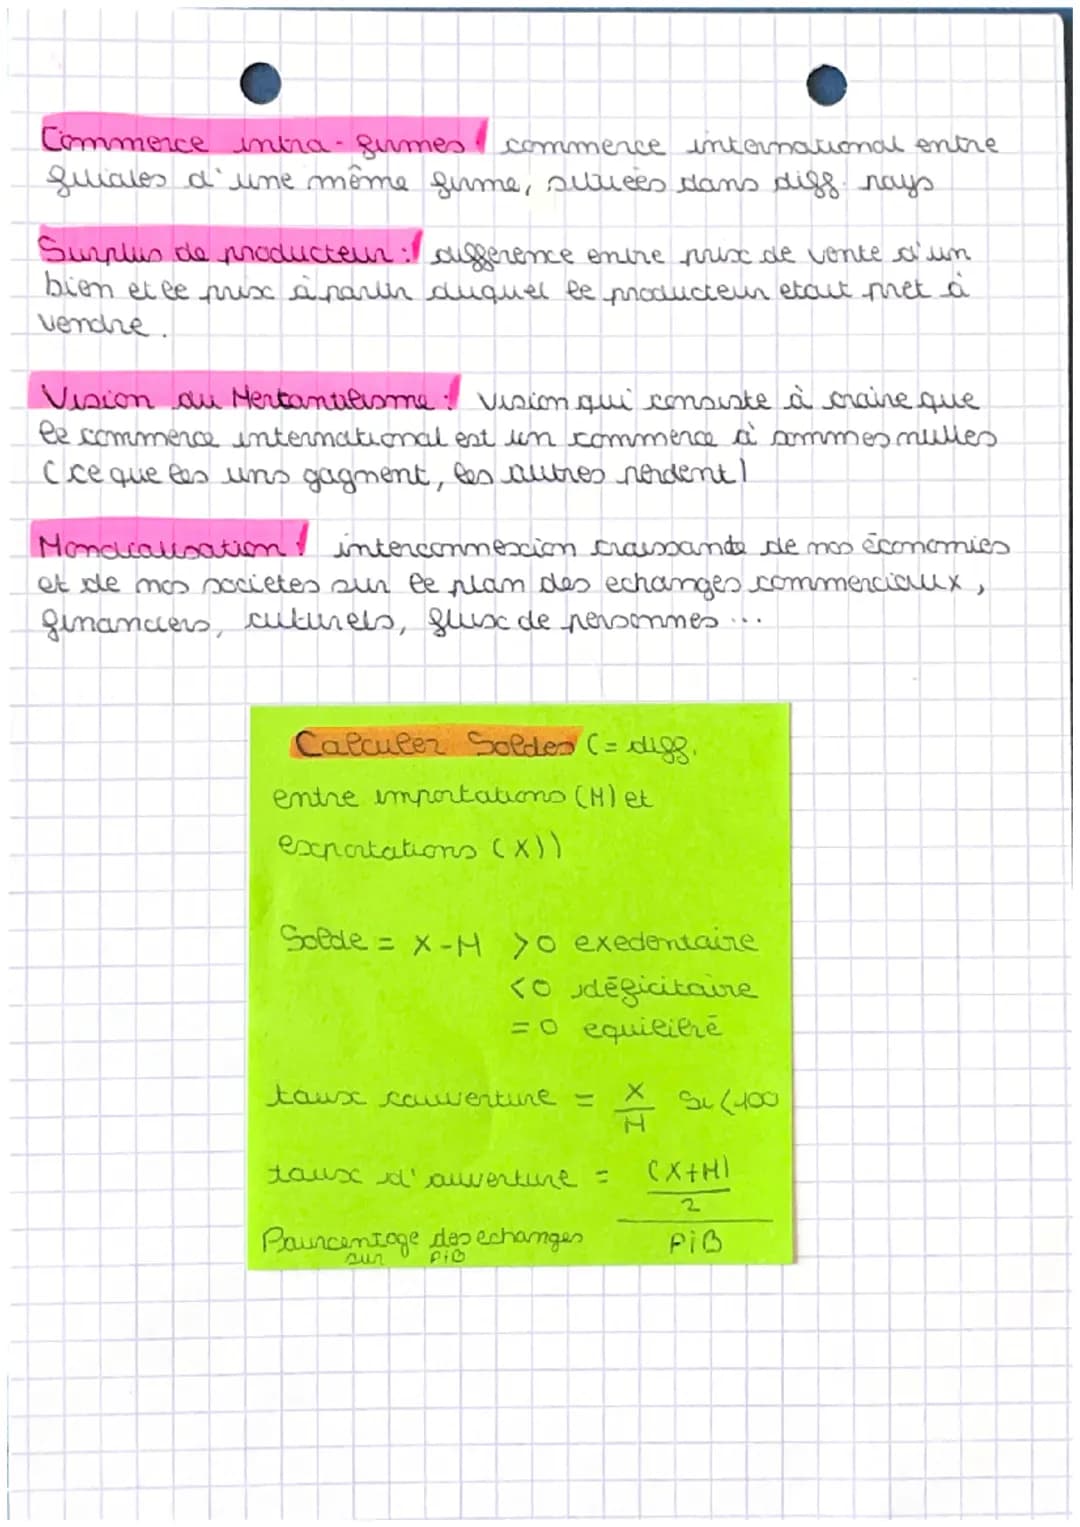 Commerce intra-firmes : commerce international entre
filiales d'une même firme, situées dans diff. pays
Surplus de producteur : difference entre prix de vente d'un
bien et le prix à partir duquel le producteur etait prêt à
vendre.
Vision du Mertantilisme : Vision qui consiste à craine que
le commerce international est un commerce à sommes nulles
(ce que les uns gagment, les autres perdent)
Mondialisation : interconnexcion craissande de nos économies
et de nos societes sur le plan des echanges commerciaux,
financiers, culturels, flux de personnes ...
Calculer Soldes (= diff.
entre importations (M) et
exportations (X))
Solde = X-M >0 exedentaire
<0 déficitaire
=0 equilibré
taux couverture = X/M Si <100
taux d'ouverture = (X+M)
2
Pourcentage des echanges PiB
sur PiB